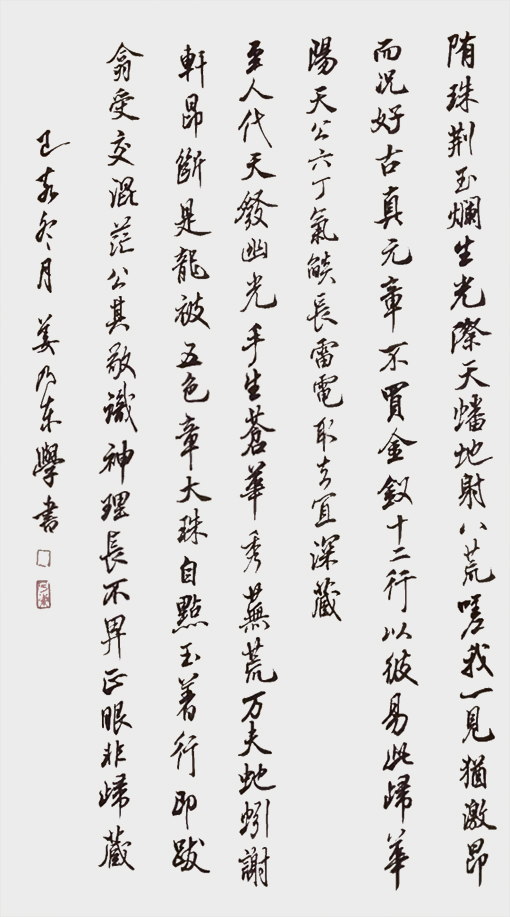 隋珠荆玉爛生光際天蟠地射八荒嗟我一見猶激昂
而況好古真元章不買金釵十二行以彼易此歸華
陽天公六丁氣燄長雷電取去宜深藏
至人代天發幽光手生蒼華秀蕪荒万夫蚍蚓謝
軒昂斷是龍被五色章大珠自點玉著行即跋
翕受交混茫公其敬識神理長不畀正眼非歸藏
己亥冬月姜乃東學書